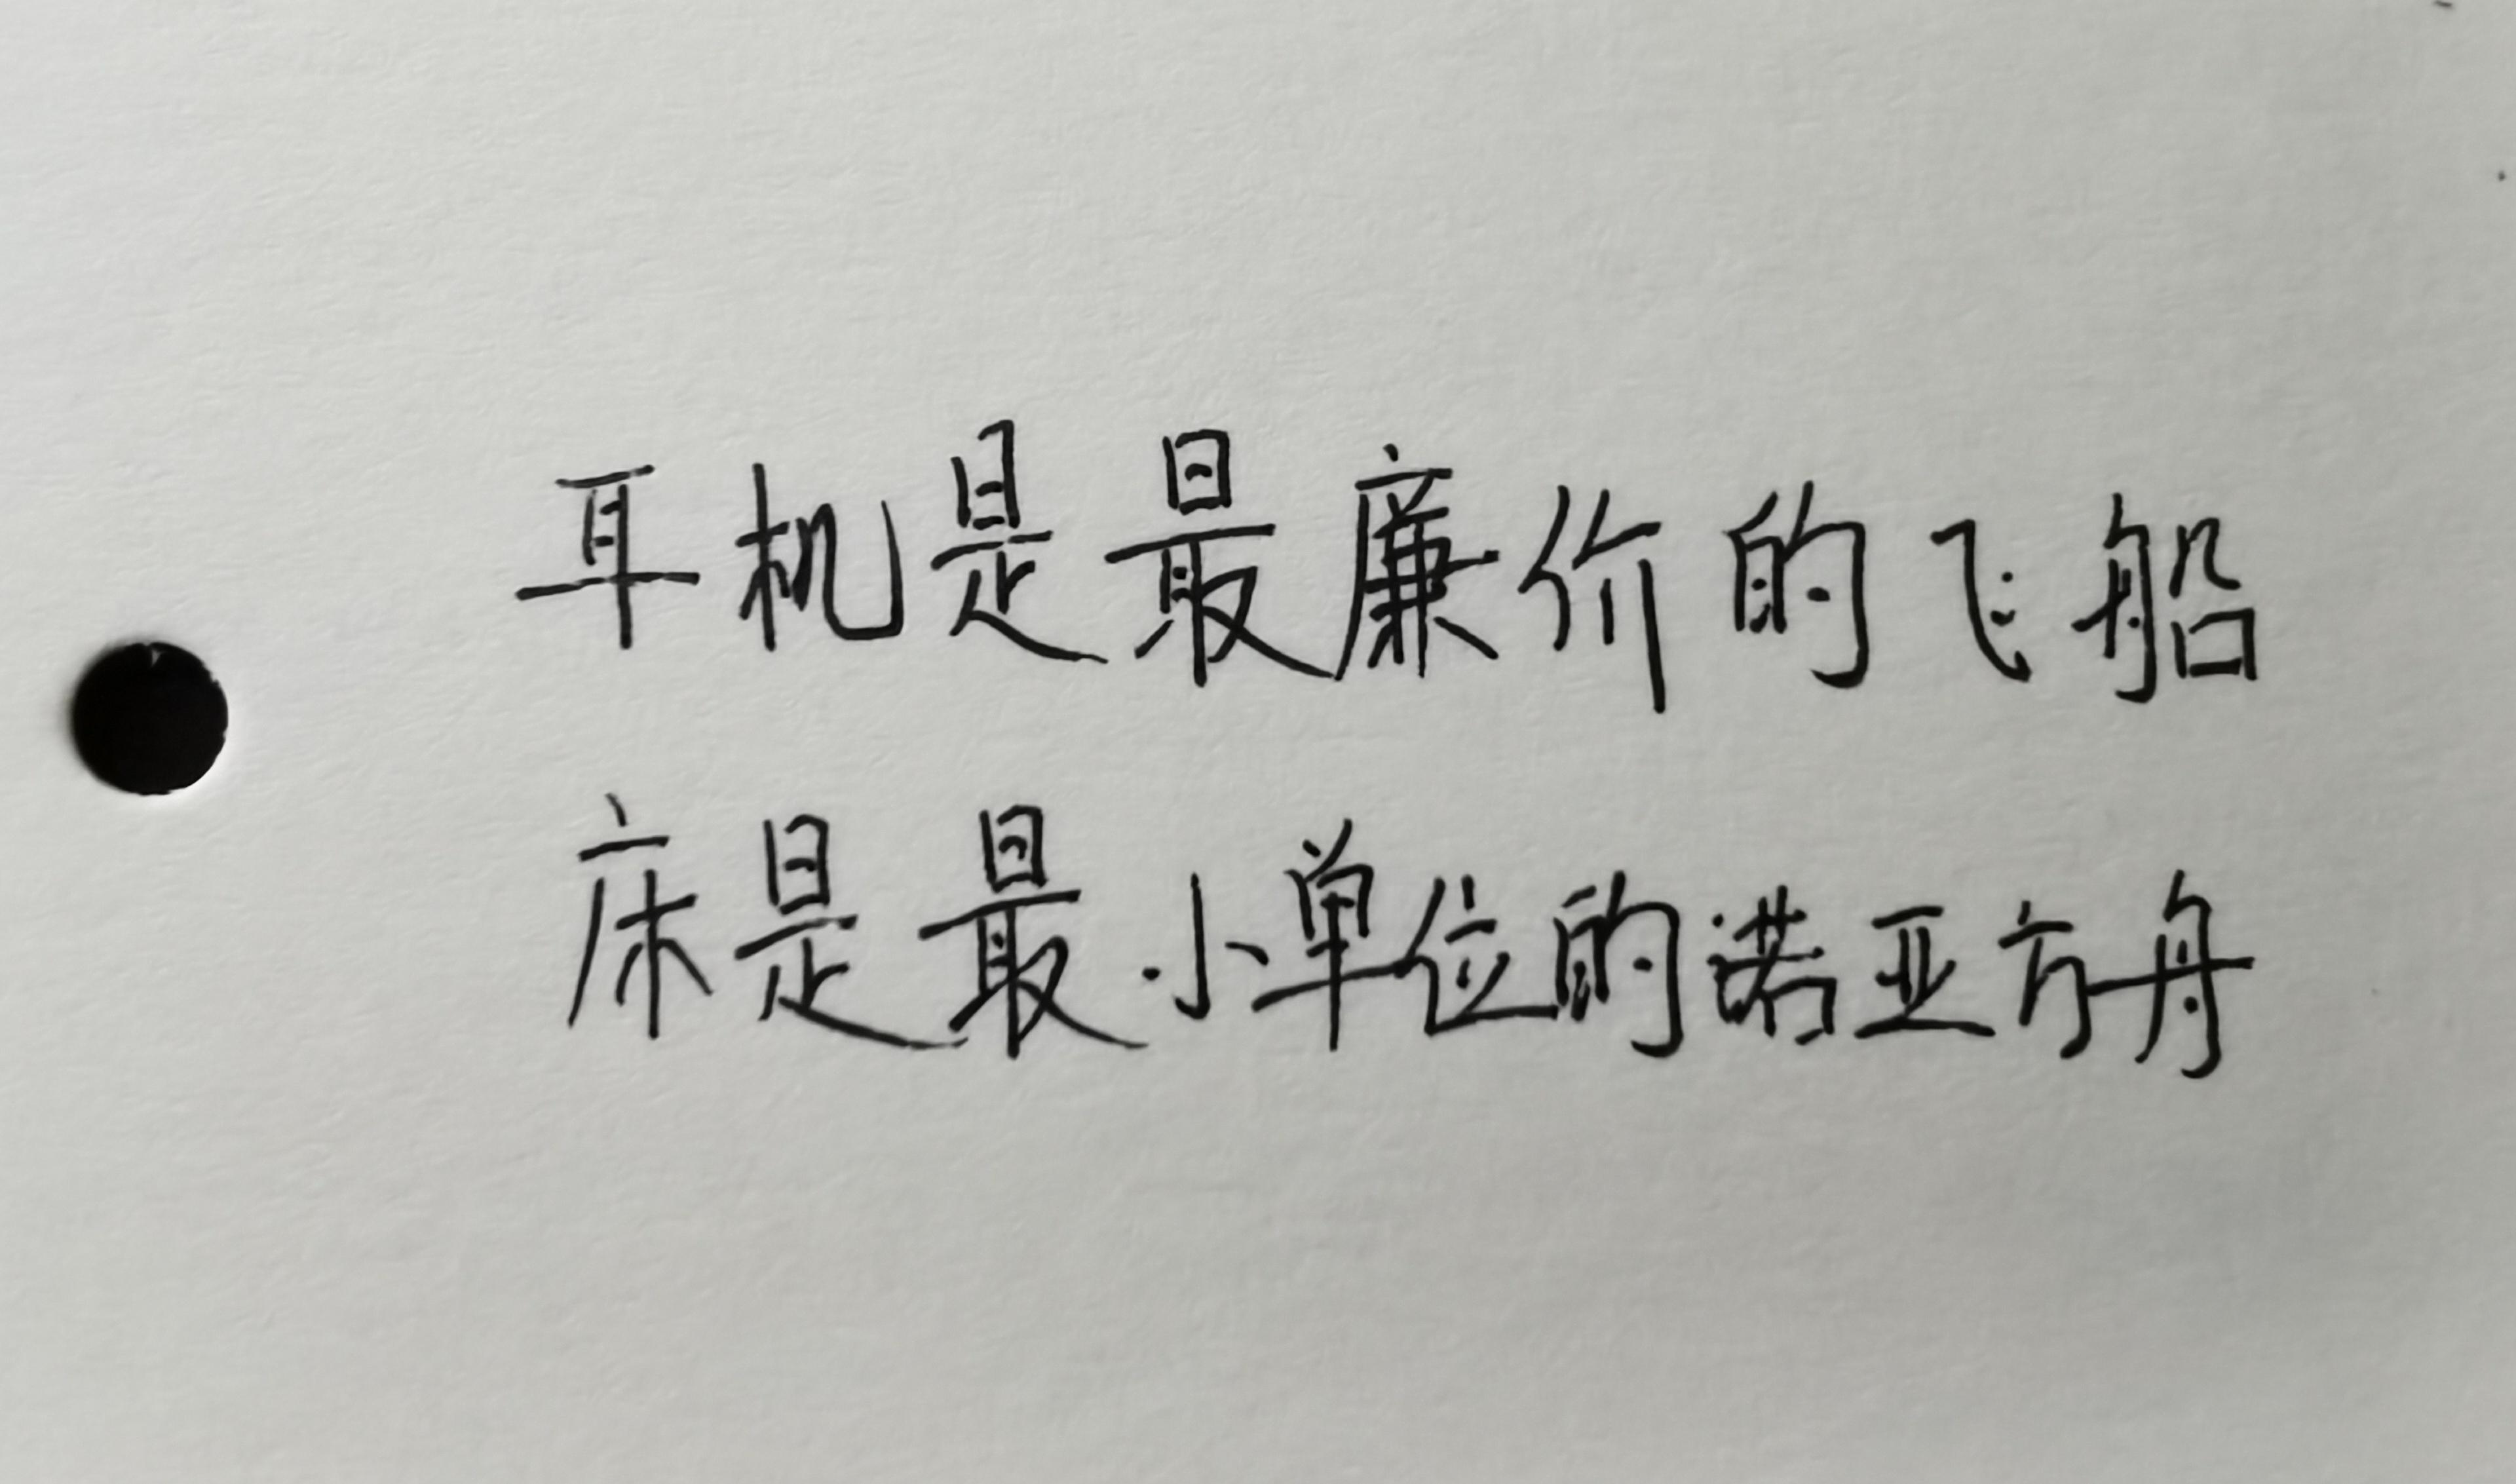 耳机是最廉价的飞船
床是最小单位的诺亚方舟